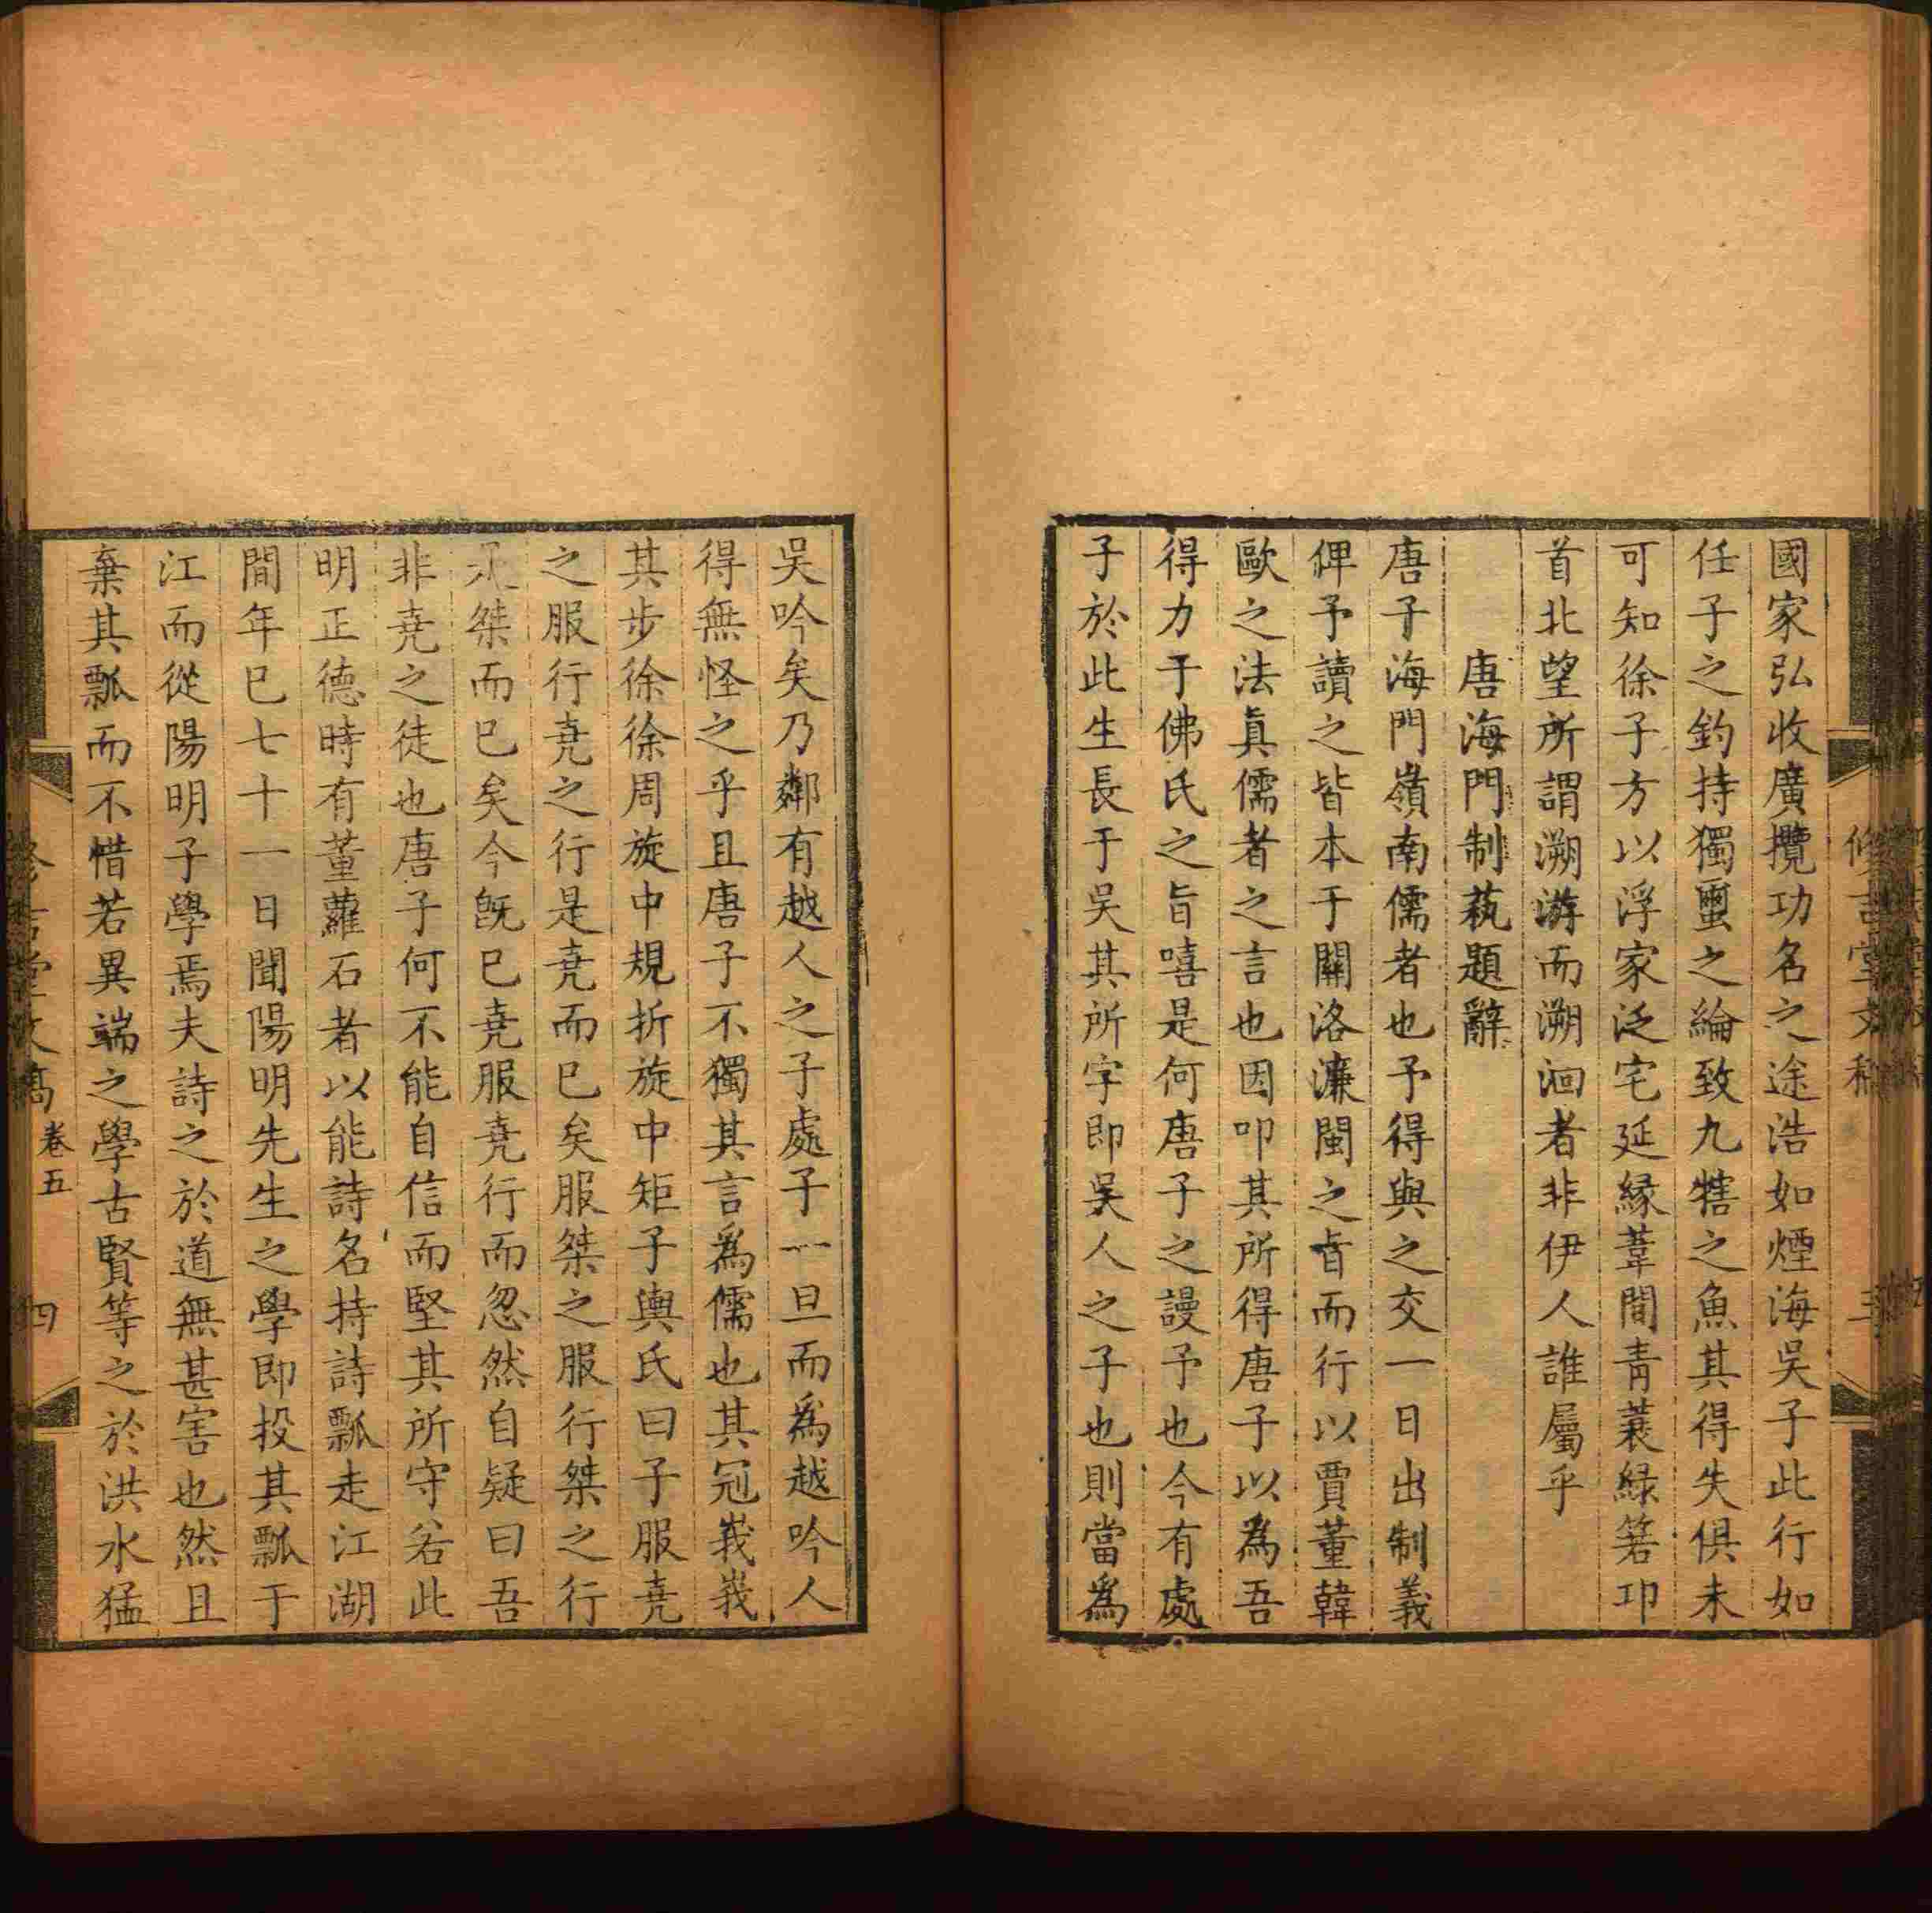 國家弘收廣攬功名之途浩如煙海吳子此行如
任子之釣持獨璽之綸致九犗之魚其得失俱未
可知徐子方以浮家泛宅延緣葦間青蓑綠箬卭
首北望所謂溯游而溯洄者非伊人誰屬乎
唐海門制蓺題辭
唐子海門嶺南儒者也予得與之交一日出制義
俾予讀之皆本于關洛濂閩之旨而行以賈董韓
歐之法真儒者之言也因叩其所得唐子以為吾
得力于佛氏之旨嘻是何唐子之謾予也今有處
子於此生長于吳其所字即吳人之子也則當為
吳吟矣乃鄰有越人之子處子一旦而為越吟人
得無怪之乎且唐子不獨其言為儒也其冠峩峩
其步徐徐周旋中規折旋中矩子輿氏曰子服堯
之服行堯之行是堯而已矣服桀之服行桀之行
是桀而已矣今既已堯服堯行而忽然自疑曰吾
非堯之徒也唐子何不能自信而堅其所守若此
明正德時有董蘿石者以能詩名持詩瓢走江湖
間年已七十一日聞陽明先生之學即投其瓢于
江而從陽明子學焉夫詩之於道無甚害也然且
棄其瓢而不惜若異端之學古賢等之於洪水猛
卷五
四